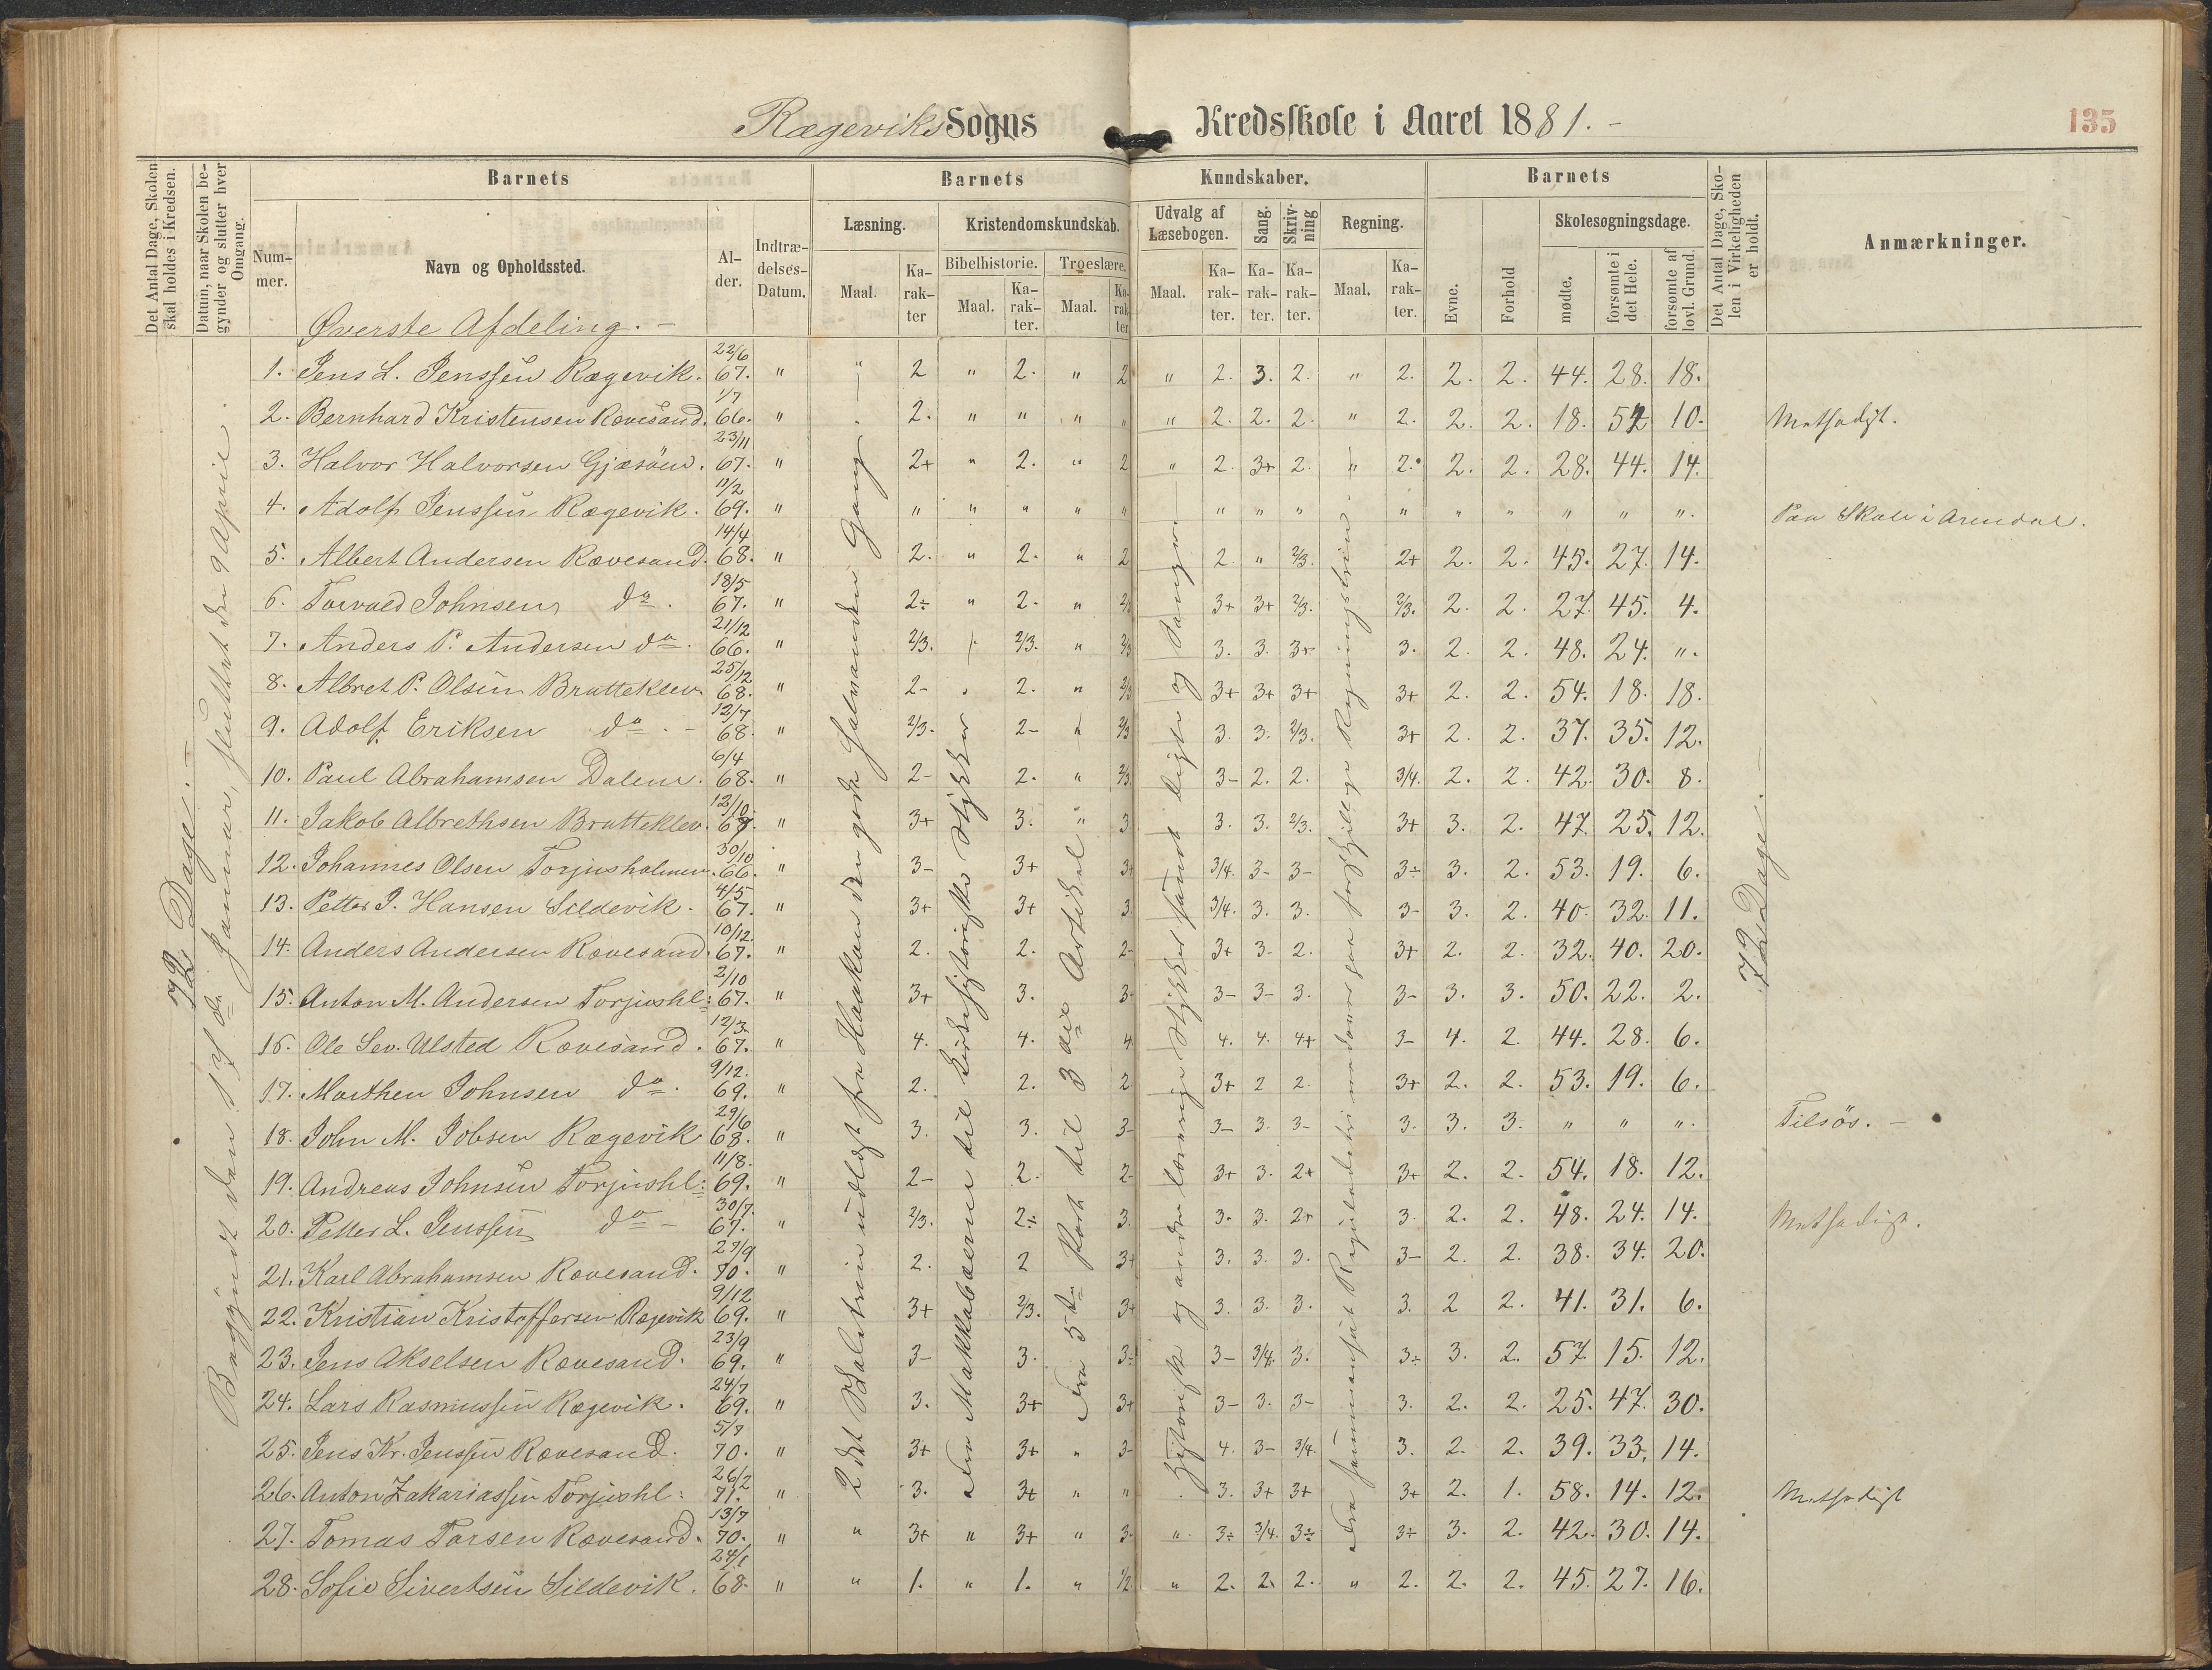 Rægeviks Sogns Kredsskole i Aaret 1881. -
135
Det Antal Dage, Skolen skal holdes i Kredsen.
Datum, naar Skolen begynder og slutter hver Omgang.
Barnets
Barnets
Kundskaber.
Barnets
Det Antal Dage, Skolen i Virkeligheden er holdt.
Anmærkninger.
Nummer.
Navn og Opholdssted.
Alder.
Indtrædelses-Datum.
Læsning.
Kristendomskundskab.
Udvalg af Læsebogen.
Sang.
Skrivning
Regning.
Evne.
Forhold
Skolesøgningsdage.
Bibelhistorie.
Troeslære.
Maal.
Karakter
Maal.
Karakter.
Maal.
Karakter
Maal.
Karakter.
Karakter.
Karakter.
Maal.
Karakter.
mødte.
forsømte i det Hele.
forsømte af lovl. Grund.
Øverste Afdeling. -
72 Dage. -
Begyndt den 17de Januar, sluttet den 9 April.
2det Skoletrin udlagt fra Haakon den gode Halvanden Gang.
Fra Makkabæerne til Kirkehistoriske Stykker
Fra 5te Part til 3die Artikel
Historiske og andre lærerige Stykker samt Digte og Sange.
72 Dage. -
1. Jens L. Jenssen Rægevik. 22/6 67. " " 2 " 2. " 2 " 2. 3. 2. " 2. 2. 2. 44. 28. 18.
2. Bernhard Kristensen Rævesand. 1/7 66. " 2. " " " " " 2. 2. 2. " 2. 2. 2. 18. 54 10. Mathadigt.
3. Halvor Halvorsen Gjæsöen. 23/11 67. " 2+ " 2. " 2 " 2. 3+ 2. " 2. 2. 2. 28. 44. 14.
4. Adolf Jenssen Rægevik. 11/2 69. " " " " " " " " " " " " " " ". Paa Skole i Arendal.
5. Albert Andersen Rævesand. 14/4 68. " 2. " 2. " 2 2. " 2/3. 2+ 2. 2. 45. 27. 14.
6. Torvald Johnsen do. 18/5 67. " 2÷ " 2. " 2/3 3+ 3+ 2/3. 2/3. 2. 2. 27. 45. 4.
7. Anders P. Andersen do. 21/12 66. " 2/3. 2/3. " 2/3 3. 3. 3+ 3. 2. 2. 48. 24. ".
8. Albret P. Olsen Bratteklev. 25/12 68. " 2- 2. " 2/3 3+ 3+ 3+ 3+ 2. 2. 54. 18. 18.
9. Adolf Eriksen do. - 12/7 68. " 2/3. 2- " 2/3 3. 3. 2/3. 3+ 2. 2. 37. 35. 12.
10. Paul Abrahamsen Dalene. 6/4 68. " 2- 2. " 2/3 3- 2. 2. 3/4. 2. 2. 42. 30. 8.
11. Jakob Albrethsen Bratteklev. 12/10. 67. " 3+ 3. " 3 3. 3. 2/3. 3+ 3. 2. 47. 25. 12.
12. Johannes Olsen Torjusholmen. 30/10 66. " 3- 3+ 3+ 3/4. 3- 3- 3÷ 3. 2. 53. 19. 6.
13. Petter J. Hansen Sildevik. 4/5 67. " 3+ 3+ 3 3/4. 3. 3. 3- 3. 2. 40. 32. 11.
14. Anders Andersen Rævesand. 10/12. 67. " 2. 2. 2- 3+ 3- 2. 3+ 2. 2. 32. 40. 20.
15. Anton M. Andersen Torjushl: 2/10 67. " 3+ 3. 3+ 3- 3- 3. 3- 3. 3. 50. 22. 2.
16. Ole Sev. Ulsted Rævesand. 12/3 67. " 4. 4. 4 4. 4. 4+ 3- 4. 2. 44. 28. 6.
17. Marthen Johnsen do. 9/12. 69. " 2. 2. 2 3+ 2 2. 3+ 2. 2. 53. 19. 6.
18. John M. Jobsen Rægevik 29/6 68. " 3. 3. 3- 3- 3. 3- 3. 3. 3. " " ". Tilsös. -
19. Andreas Johnsen Torjushl: 11/8. 69. " 2- 2. 2- 3+ 3. 2+ 3+ 2. 2. 54. 18. 12.
20. Petter L. Jenssen do - 30/7. 67. " 2/3. 2÷ 3. 3. 3. 2+ 3. 2. 2. 48. 24. 14. Mathadigt.
21. Karl Abrahamsen Rævesand. 27/9 70. " 2. 2 3+ 3. 3. 3. 3- 2. 2. 38. 34. 20.
22. Kristian Kristoffersen Rægevik 9/12 69. " 3+ 2/3. 3+ 3. 3. 3. 3. 2 2. 41. 31. 6.
23. Jens Akselsen Rævesand. 23/9 69. " 3- 3. 3÷ 3- 3/4. 3. 3÷ 3. 2. 57. 15. 12.
24. Lars Rasmussen Rægevik. 24/7 69. " 3. 3+ 3+ 3- 3. 3- 3. 2. 2. 25. 47. 30.
25. Jens Kr. Jenssen Rævesand. 5/7 70. " 3+ 3+ " 3- 4. 3- 3/4. 3. 2. 2. 39. 33. 14.
26. Anton Zakariassen Torjushl: 26/2 71. " 3. 3+ " " 3. 3+ 3+ 3+ 2. 1. 58. 14. 12. Mathadigt
27. Tomas Tarsen Rævesand. 13/7 70. " " 3+ " 3+ " 3- " 3÷ 3/4. 3÷ 3÷ 3. 2. 42. 30. 14.
28. Sofie Sivertsen Sildevik. 24/1 68. " " 1. " 1. " 1/2 " 2. 2. 2. " 2. 2. 2. 45. 27. 16.